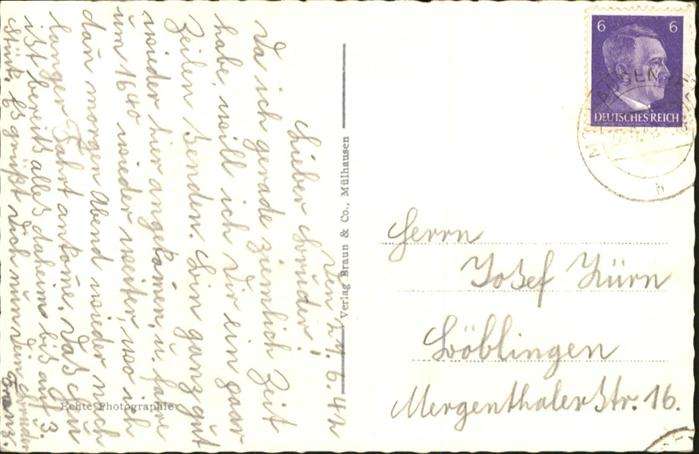 Den 21.6.42
Lieber Bruder!
Da ich gerade ziemlich Zeit
habe, will ich Dir ein paar
Zeilen senden. Bin ganz gut
wieder hier angekomen, u. fare
um 16 40 wieder weiter, wo ich
dan morgen Abend wieder nach
langer Fahrt ankome. Das
ist bereits alles daheim bis auf 3.
Stück. Es grüßt dich nun Dein Bruder
Franz.
Echte Photographie
Verlag Braun & Co., Mülhausen
6 6
DEUTSCHES REICH
Herrn
Josef Zürn
Böblingen
Mergenthaler Str. 16.